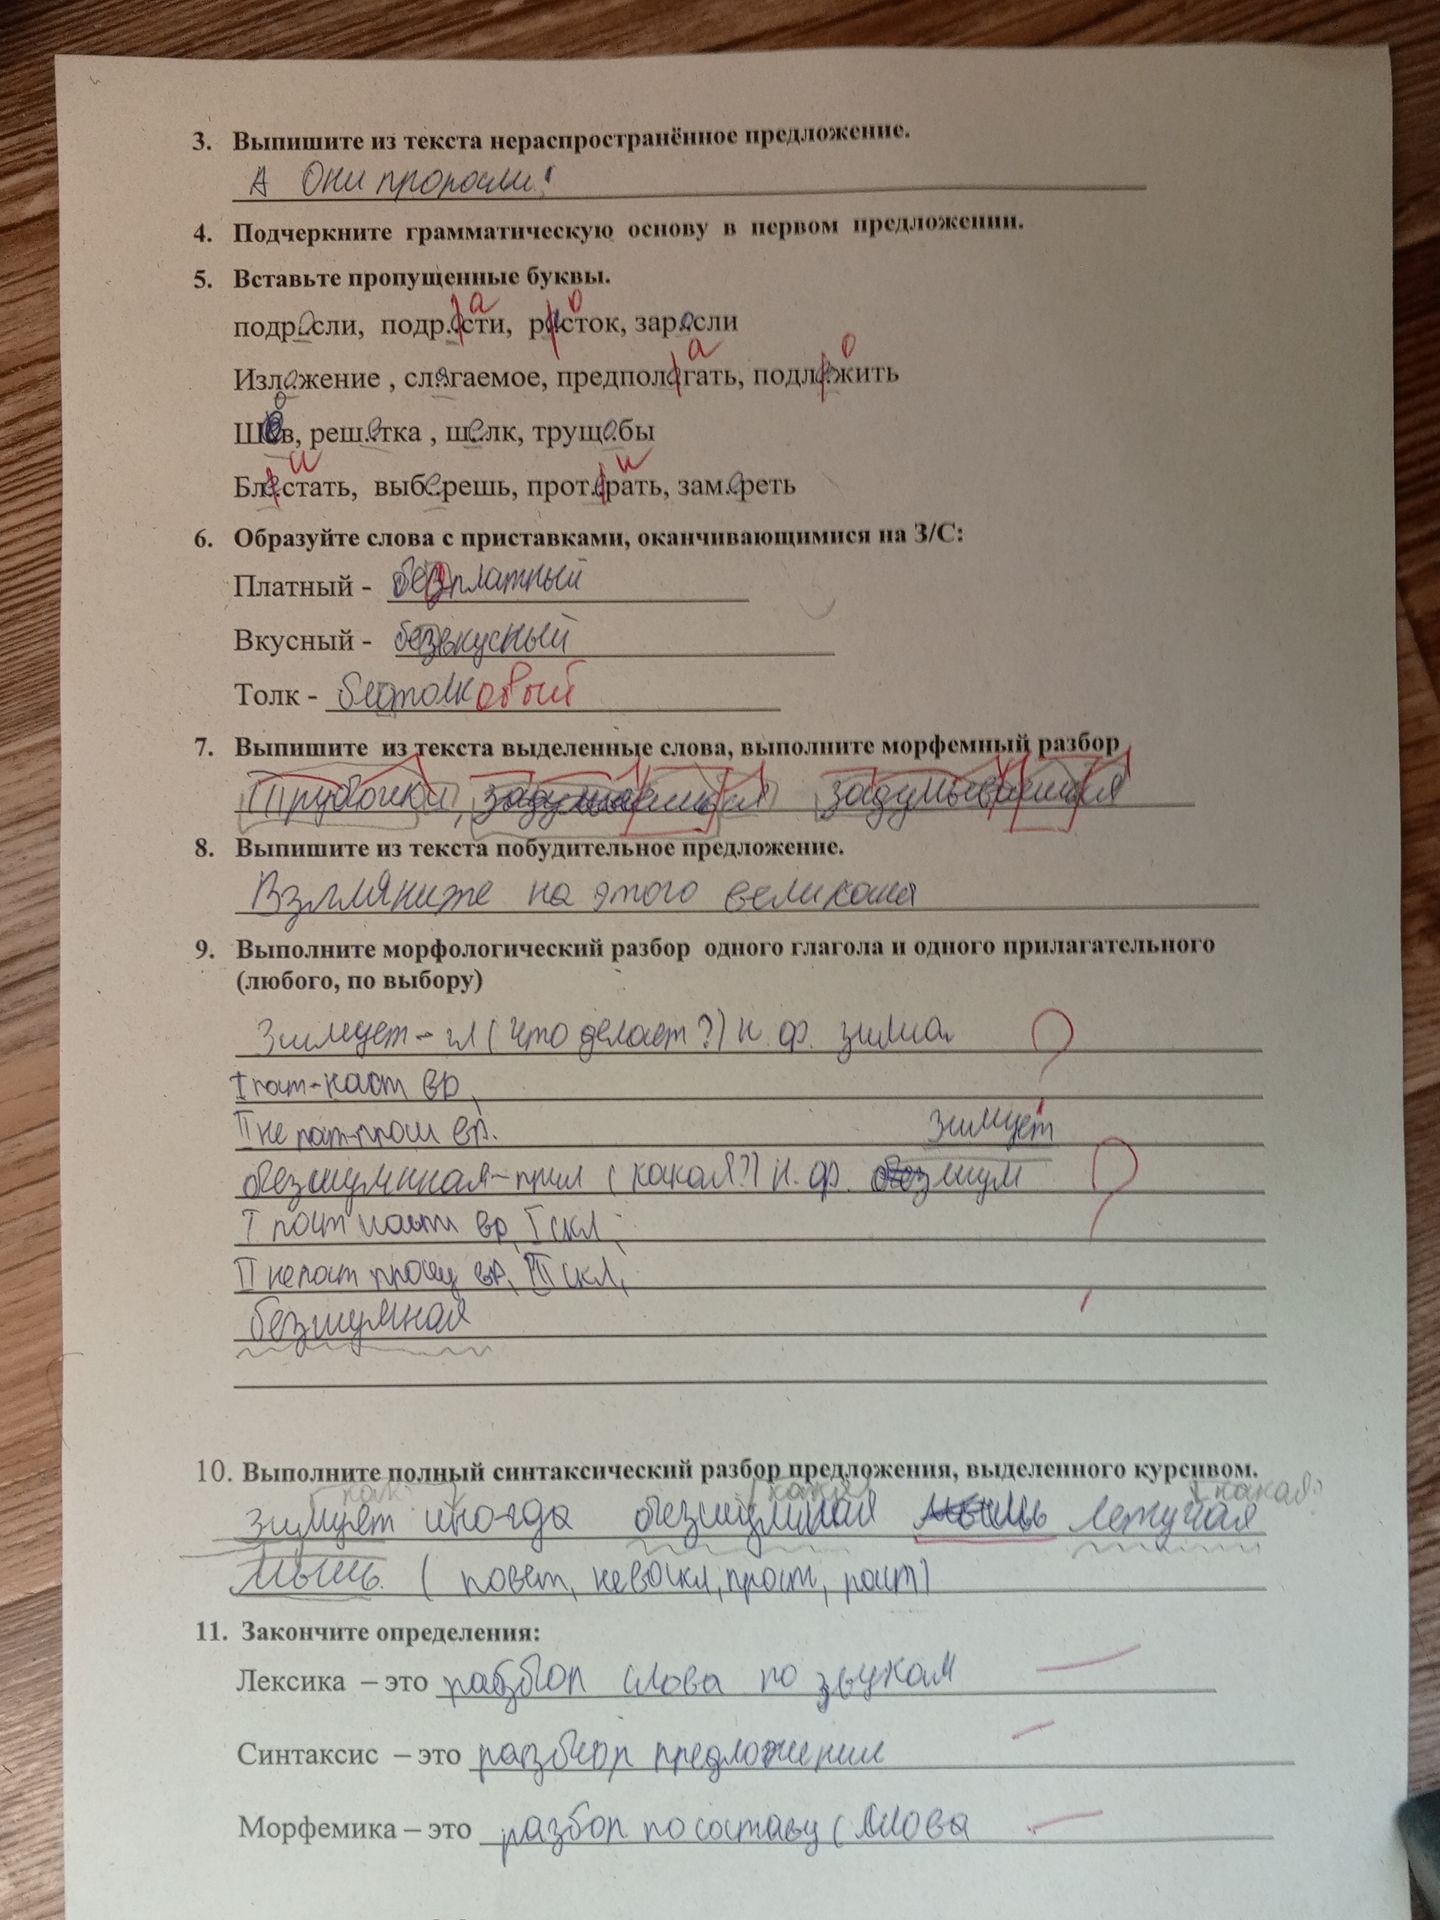 3. Выпишите из текста нераспространённое предложение.
А Они проросли!
4. Подчеркните грамматическую основу в первом предложении.
5. Вставьте пропущенные буквы.
а о
подросли, подр.сти, р.сток, заросли
а о
Изложение , слагаемое, предпол.гать, подл.жить
Шов, реш.етка , шелк, трущобы
и и
Бл.стать, выберешь, прот.рать, зам.ереть
6. Образуйте слова с приставками, оканчивающимися на З/С:
Платный - безплатный
Вкусный - безвкусный
Толк - бестолковый
7. Выпишите из текста выделенные слова, выполните морфемный разбор
Трубочки,
8. Выпишите из текста побудительное предложение.
Взгляните на этого великана
9. Выполните морфологический разбор одного глагола и одного прилагательного
(любого, по выбору)
Зимует - гл (что делает?) н. ф. зима ?
I пост-наст вр,
II не пост-прош вр. зимует
безшумная - прил (какая?) н. ф. шум ?
I пост наст вр, I скл,
II не пост прош вр, III скл,
безшумная
10. Выполните полный синтаксический разбор предложения, выделенного курсивом.
какая какая
зимует иногда безшумная летучая
мышь. ( повест, невоскл, прост, )
11. Закончите определения:
Лексика – это разбор слова по звукам
Синтаксис – это разбор предложения
Морфемика – это разбор по составу ( слова